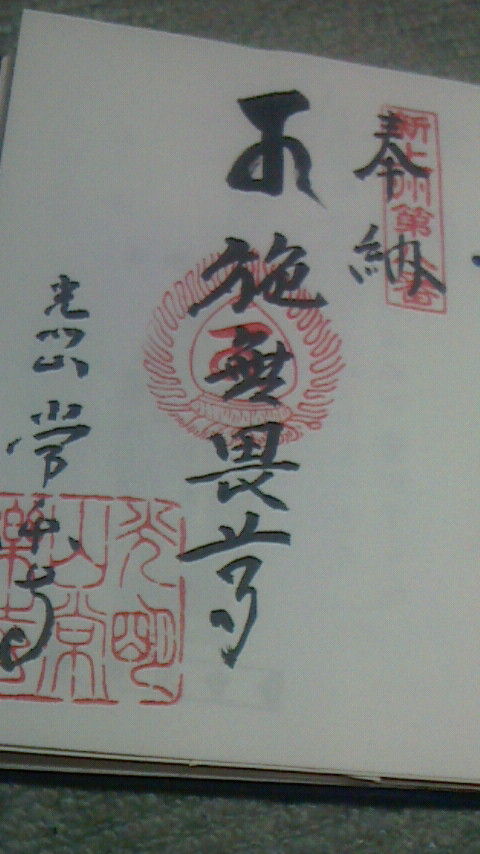 奉納
新上州第
施無畏尊
光明山
常楽寺
光明
山常
樂寺